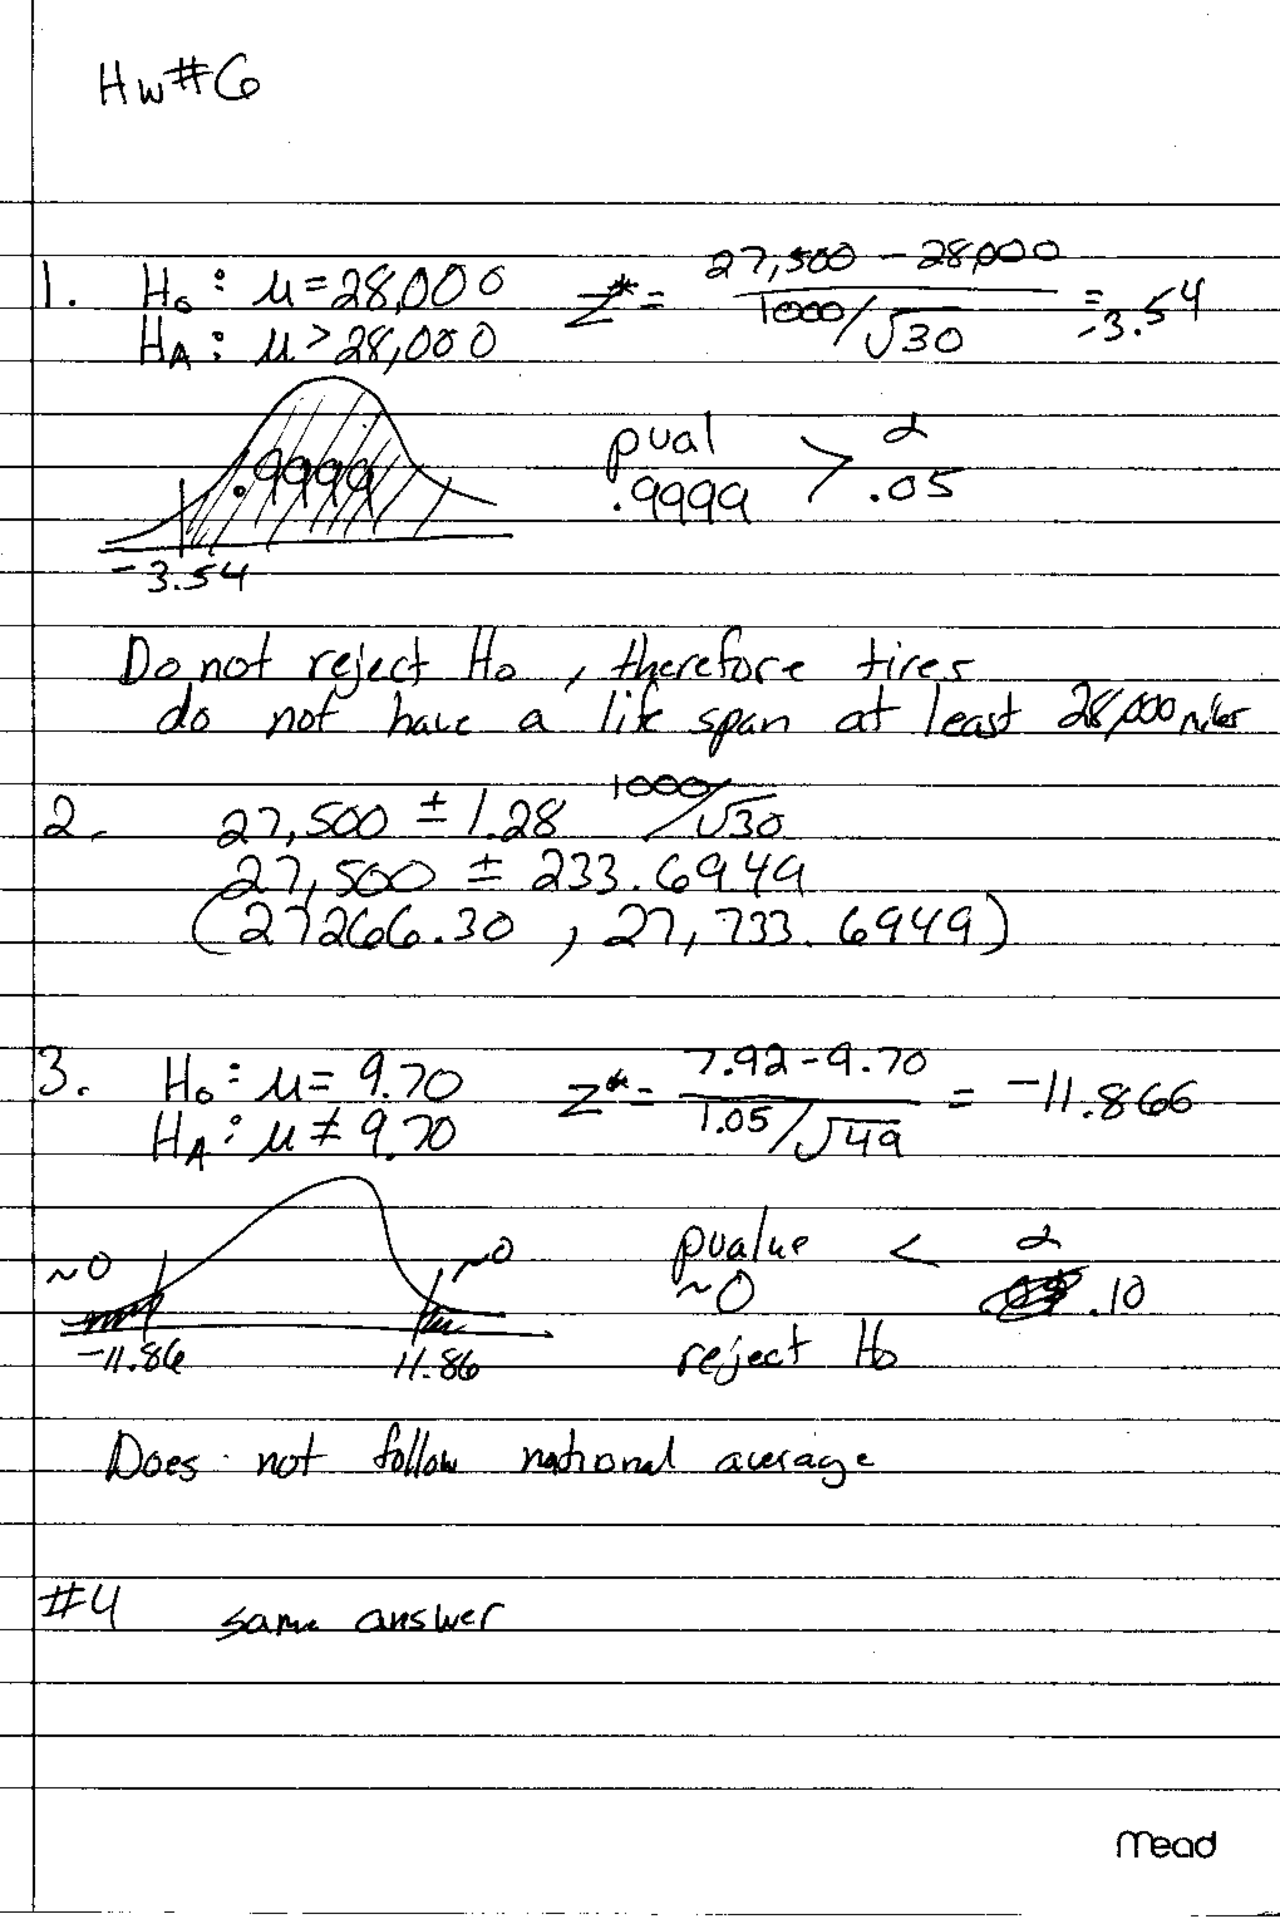 Hw#6
1. H₀: μ=28,000 Z*= (27,500 - 28,000)/(1000/√30) = -3.54
H_A: μ>28,000
.9999
pval > α
.9999 .05
-3.54
Do not reject H₀, therefore tires
do not have a life span at least 28,000 miles
2. 27,500 ± 1.28 1000/√30
27,500 ± 233.6949
(27266.30, 27,733.6949)
3. H₀: μ= 9.70 Z*= (7.92-9.70)/(1.05/√49) = -11.866
H_A: μ≠9.70
~0 ~0 pvalue < α
~0 .10
-11.86 11.86 reject H₀
Does not follow national average
#4 same answer
Mead